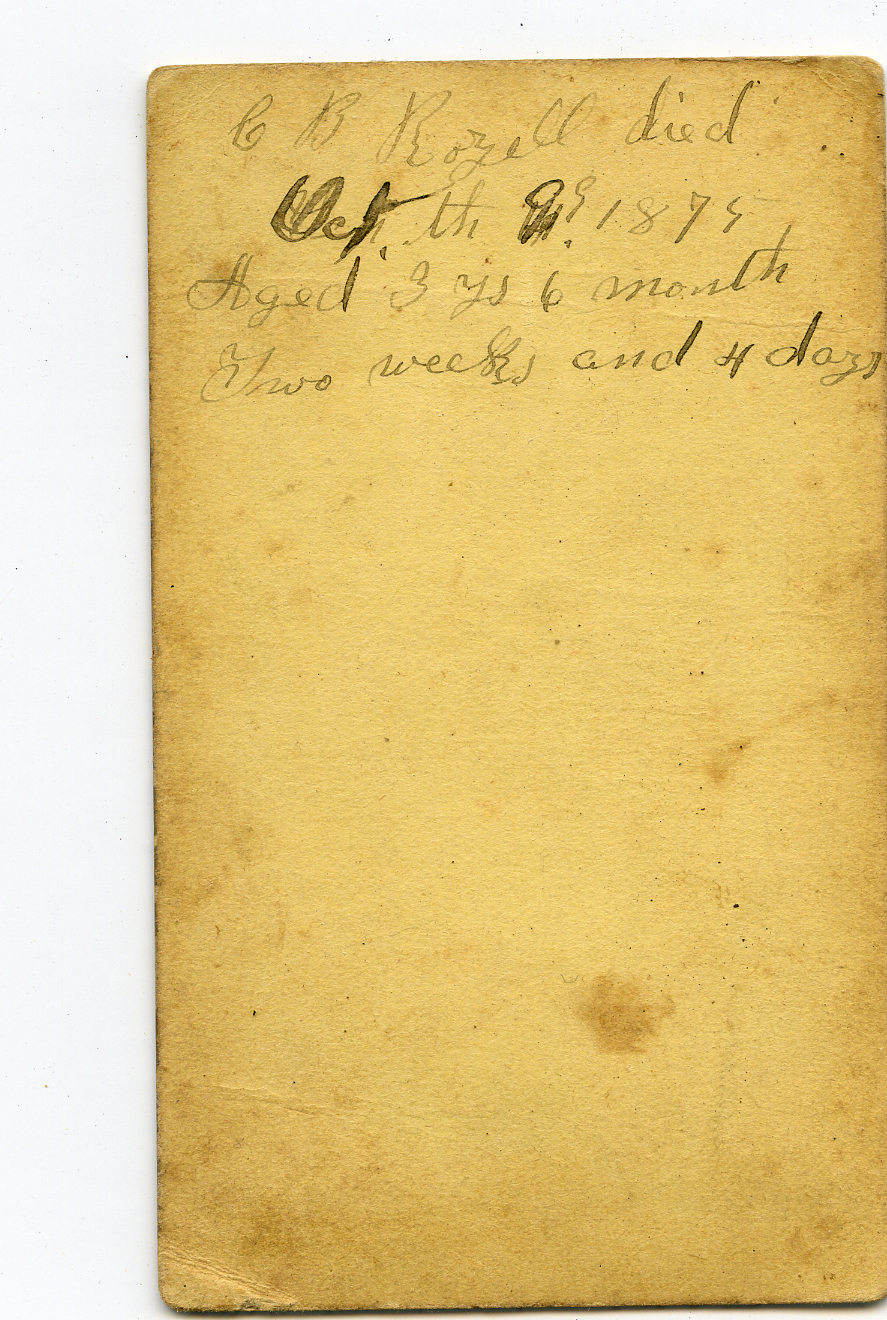 C B Rozell died
Oct. th 1875
Aged 3 ys 6 month
Two weeks and 4 days